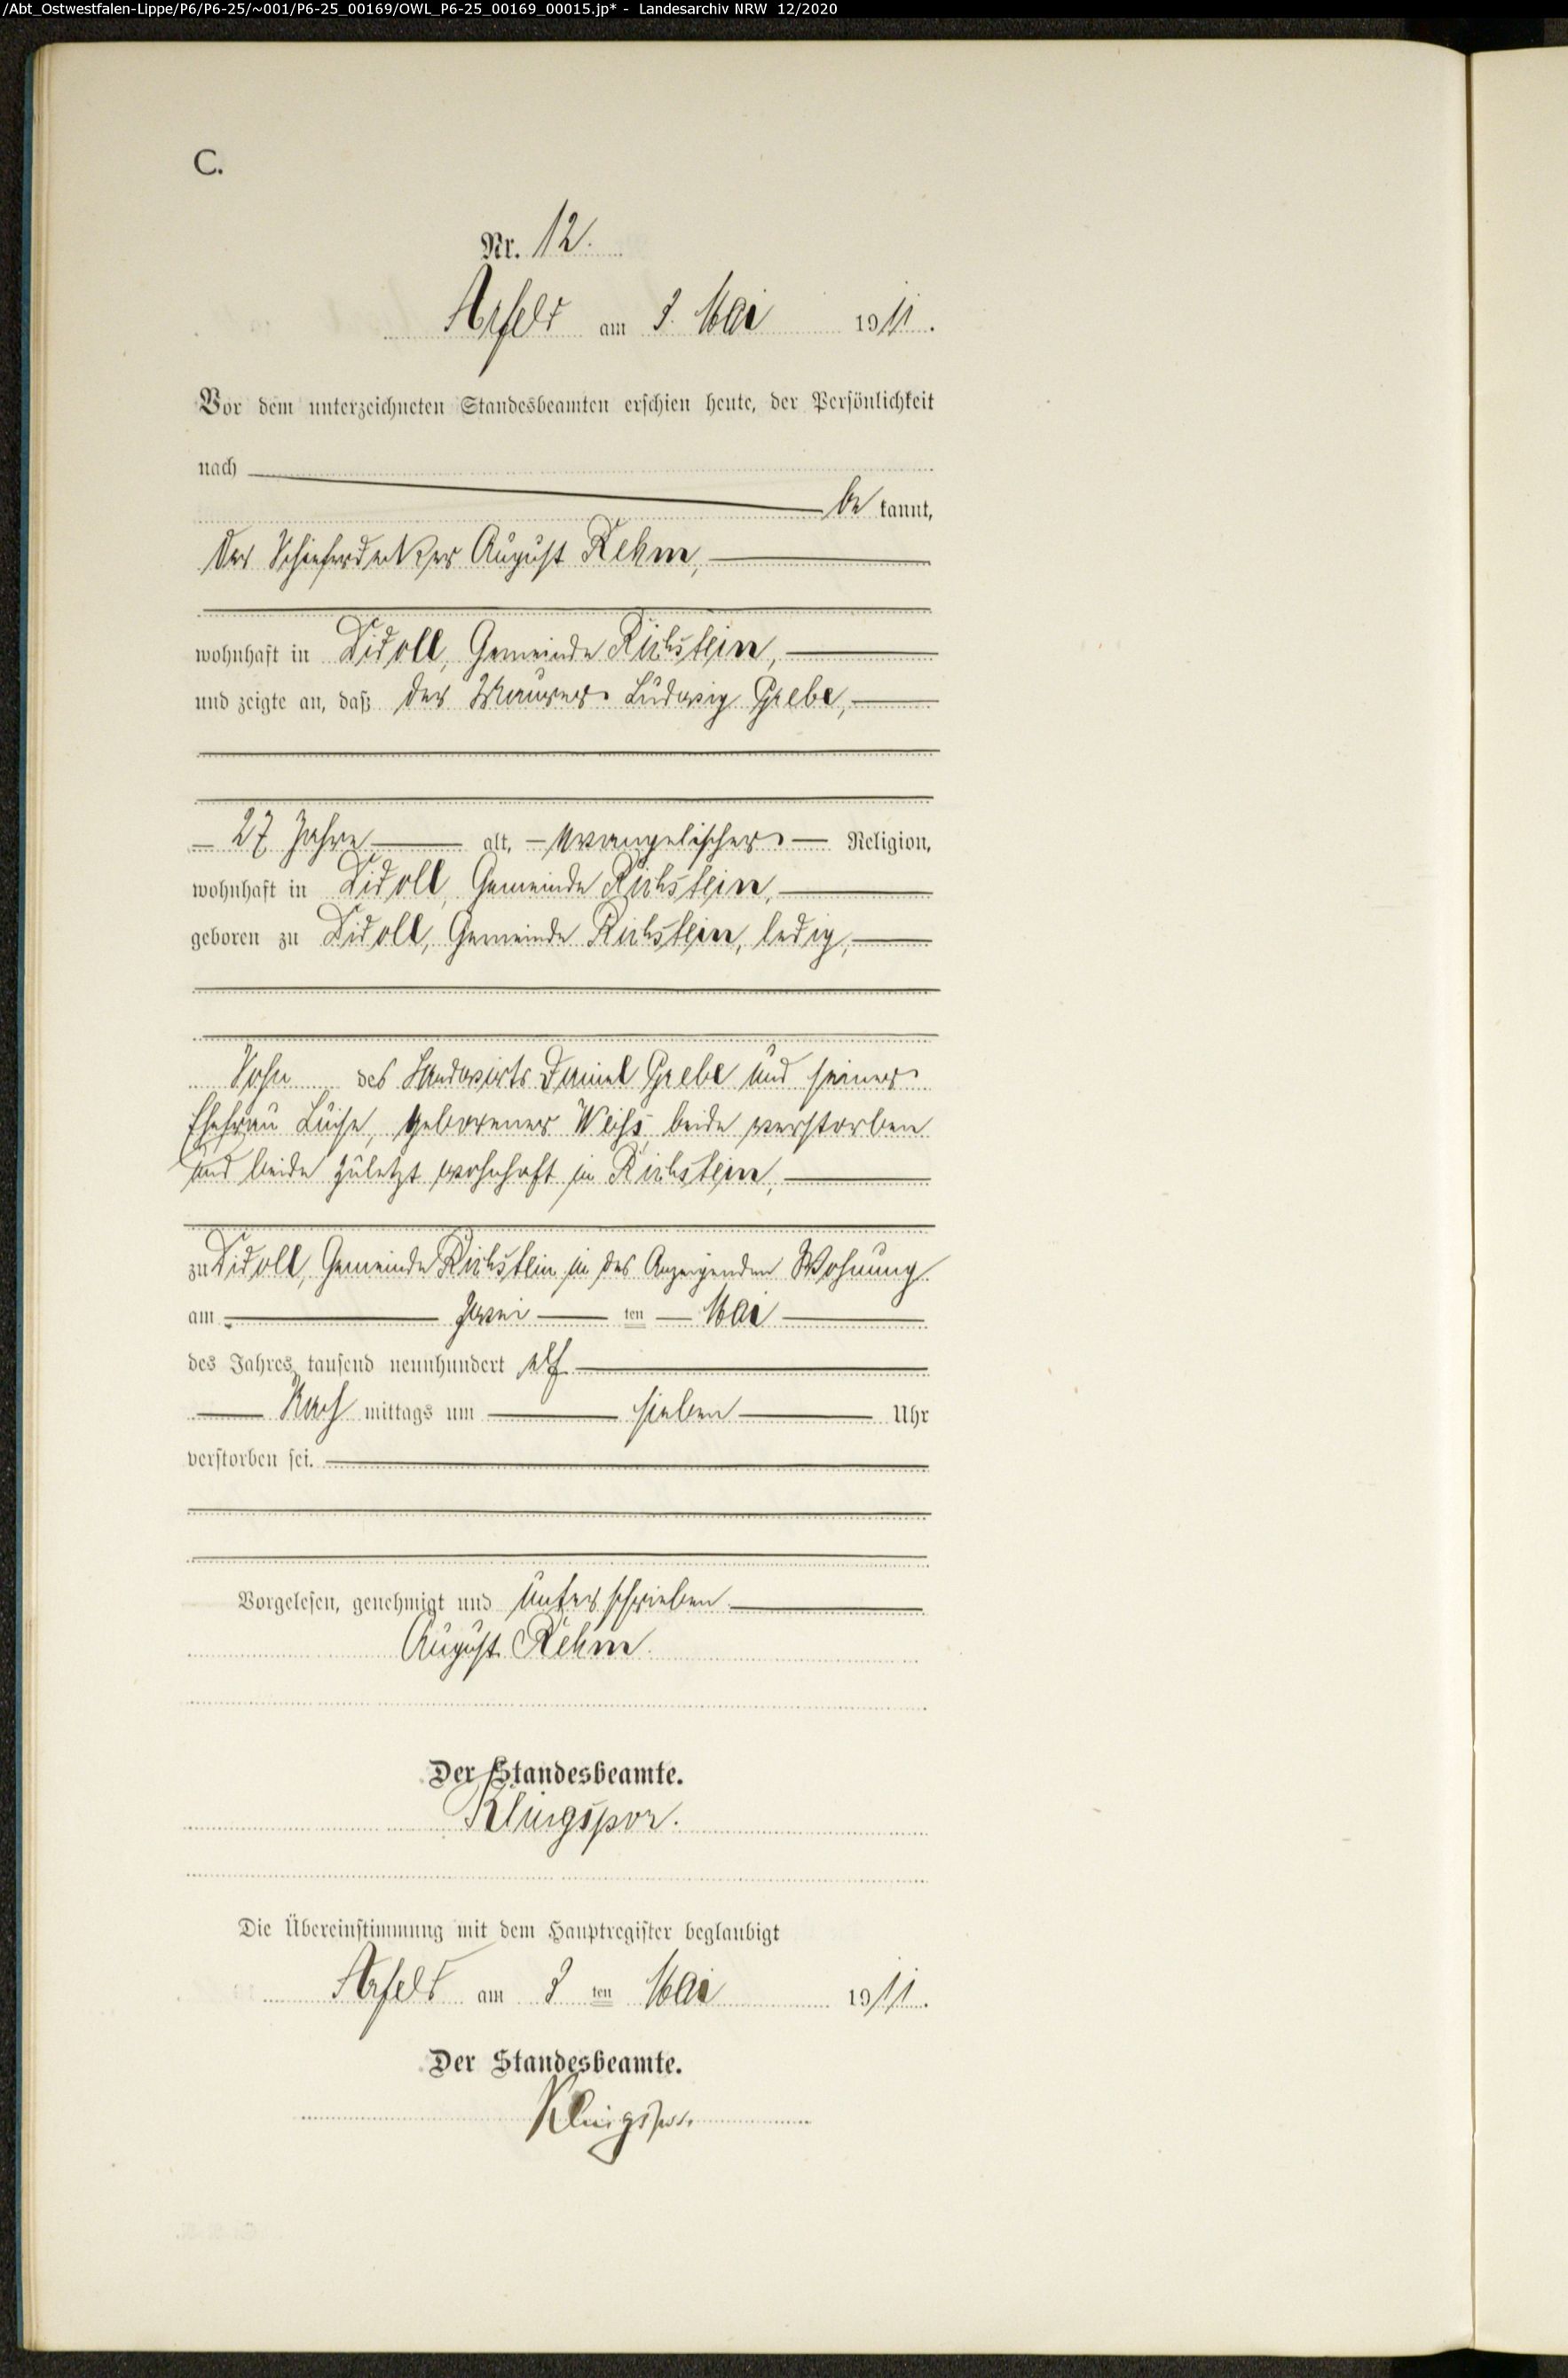 /Abt_Ostwestfalen-Lippe/P6/P6-25/~001/P6-25_00169/OWL_P6-25_00169_00015.jp* - Landesarchiv NRW 12/2020
C.
Nr. 12.
Arfeld am 3. Mai 1911.
Vor dem unterzeichneten Standesbeamten erschien heute, der Persönlichkeit
nach
be kannt,
der Schieferdecker August Rehm,
wohnhaft in Didoll, Gemeinde Richstein,
und zeigte an, daß der Maurer Ludwig Grebe,
27 Jahre alt, evangelischer Religion,
wohnhaft in Didoll, Gemeinde Richstein,
geboren zu Didoll, Gemeinde Richstein, ledig,
Sohn des Landwirts Daniel Grebe und seiner
Ehefrau Luise, geborener Weiß, beide verstorben
und beide zuletzt wohnhaft in Richstein,
zu Didoll, Gemeinde Richstein in des Anzeigenden Wohnung
am zwei ten Mai
des Jahres tausend neunhundert elf
Nach mittags um sieben Uhr
verstorben sei.
Vorgelesen, genehmigt und unterschrieben
August Rehm.
Der Standesbeamte.
Klingspor.
Die Übereinstimmung mit dem Hauptregister beglaubigt
Arfeld am 3 ten Mai 1911.
Der Standesbeamte.
Klingspor.